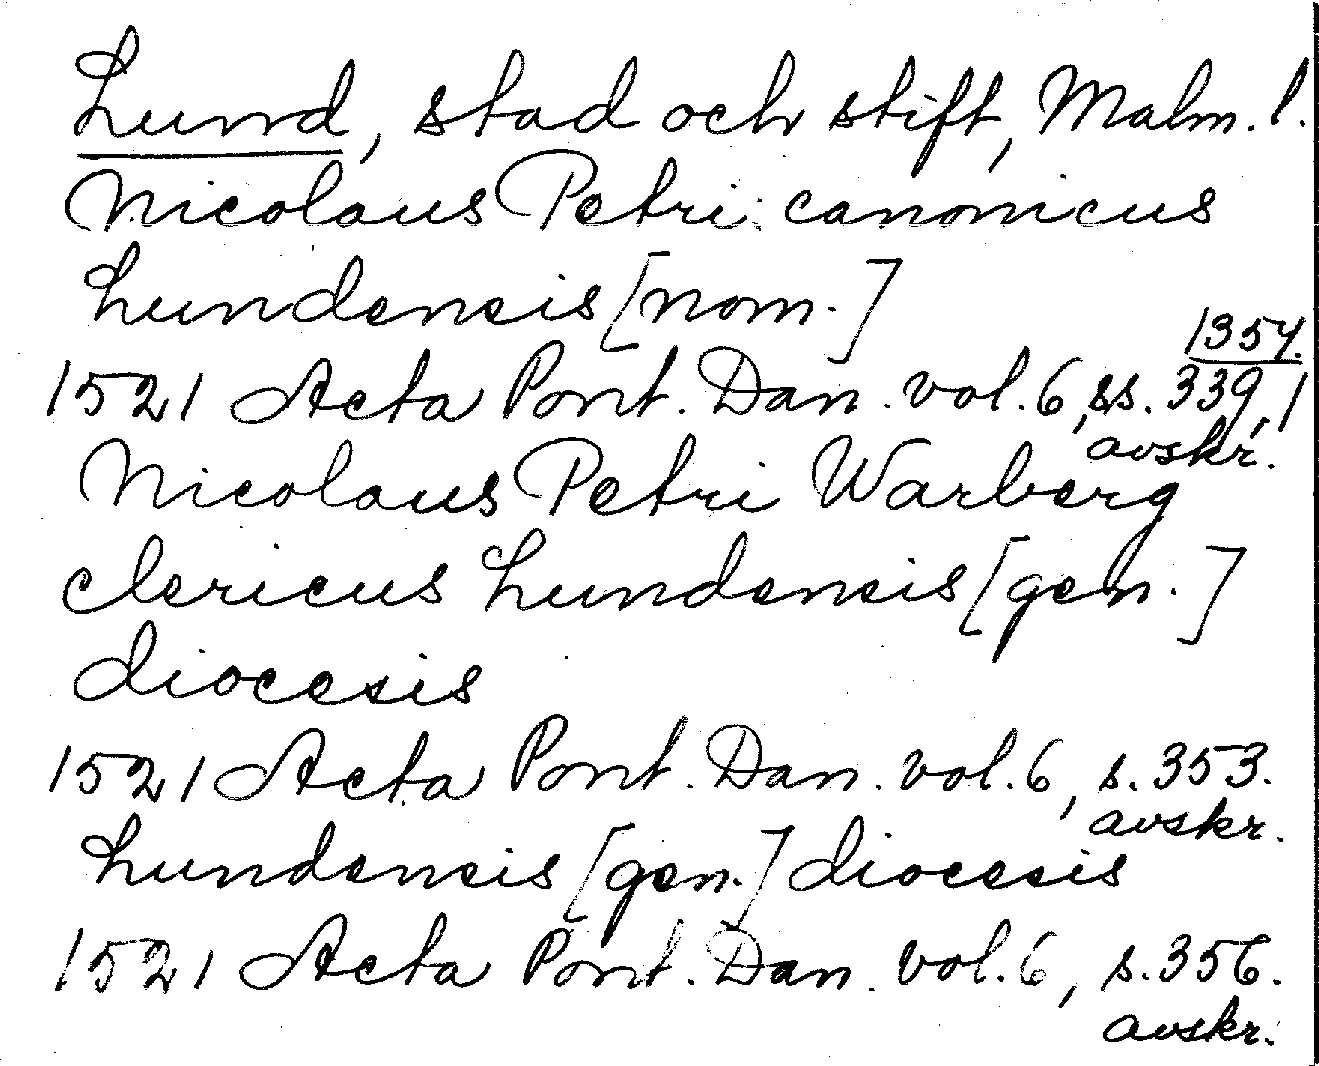 Lund, stad och stift, Malm. l.
Nicolaus Petri canonicus
Lundensis [nom.]
1354.
1521 Acta Pont. Dan. vol. 6, ss. 339, 1
avskr.
Nicolaus Petri Warberg
clericus Lundensis [gen.]
diocesis
1521 Acta Pont. Dan. vol. 6, s. 353.
avskr.
Lundensis [gen.] diocesis
1521 Acta Pont. Dan. vol. 6, s. 356.
avskr.